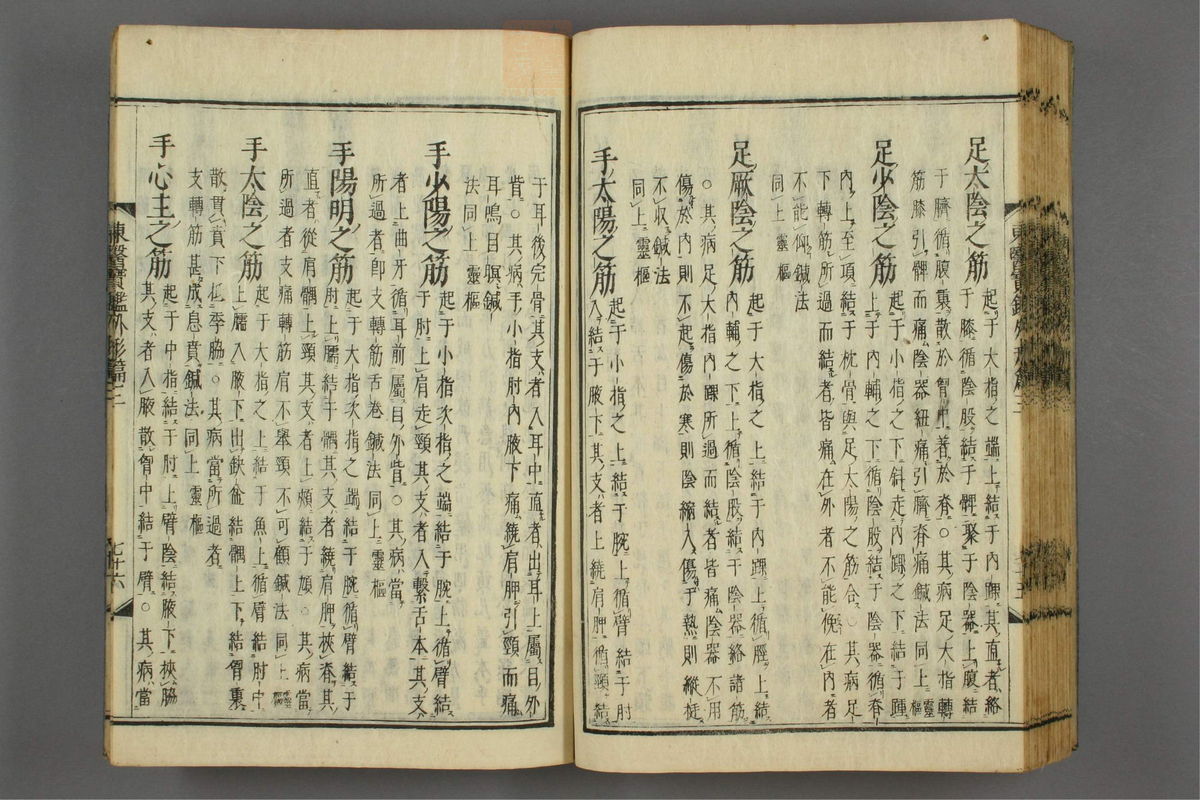 足太陰之筋 起于大指之端上結于內踝其直者絡
于膝循陰股結于髀聚于陰器上腹結
于臍循腹裏散於胷中著於脊○其病足大指轉
筋膝引髀而痛陰器紐痛引臍脊痛鍼法同上靈樞
足少陰之筋 起于小指之下斜走內踝之下結于踵
上于內輔之下循陰股結于陰器循脊
內上至項結于枕骨與足太陽之筋合○其病足
下轉筋所過而結者皆痛在外者不能俛在內者
不能仰鍼法
同上靈樞
足厥陰之筋 起于大指之上結于內踝上循脛上結
內輔之下上循陰股結于陰器絡諸筋
○其病足大指內踝所過而結者皆痛陰器不用
傷於內則不起傷於寒則陰縮入傷于熱則縱挺
不收鍼法
同上靈樞
手太陽之筋 起于小指之上結于腕上循臂結于肘
入結于腋下其支者上繞肩胛循頸結
于耳後完骨其支者入耳中直者出耳上屬目外
眥○其病手小指肘內腋下痛繞肩胛引頸而痛
耳鳴目瞑鍼
法同上靈樞
手少陽之筋 起于小指次指之端結于腕上循臂結
于肘上肩走頸其支者入繫舌本其支
者上曲牙循耳前屬目外眥○其病當
所過者即支轉筋舌卷鍼法同上靈樞
手陽明之筋 起于大指次指之端結于腕循臂結于
肘上臑結于髃其支者繞肩胛挾脊其
直者從肩髃上頸其支者上頰結于頄○其病當
所過者支痛轉筋肩不舉頸不可顧鍼法同上靈樞
手太陰之筋 起于大指之上結于魚上循臂結肘中
上臑入腋下出缺盆結髃上下結胷裏
散貫賁下抵季脇○其病當所過者
支轉筋甚成息賁鍼法同上靈樞
手心主之筋 起于中指結于肘上臂陰結腋下挾脇
其支者入腋散胷中結于臂○其病當
東醫寶鑑外形篇三
七十六